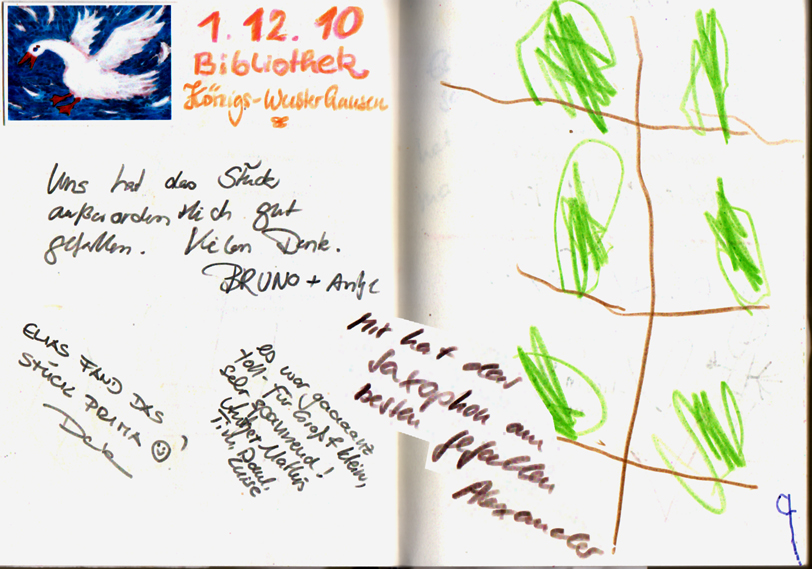 1. 12. 10
Bibliothek
Königs-Wusterhausen
Uns hat das Stück
außerordentlich gut
gefallen. Vielen Dank.
BRUNO + Antje
ELIAS FAND DAS
STÜCK PRIMA ☺,
es war gaaaanz
toll - für Groß & klein,
sehr spannend!
Mathis
Tim, Paul,
Luise
Mir hat das
Saxophon am
besten gefallen
Alexander